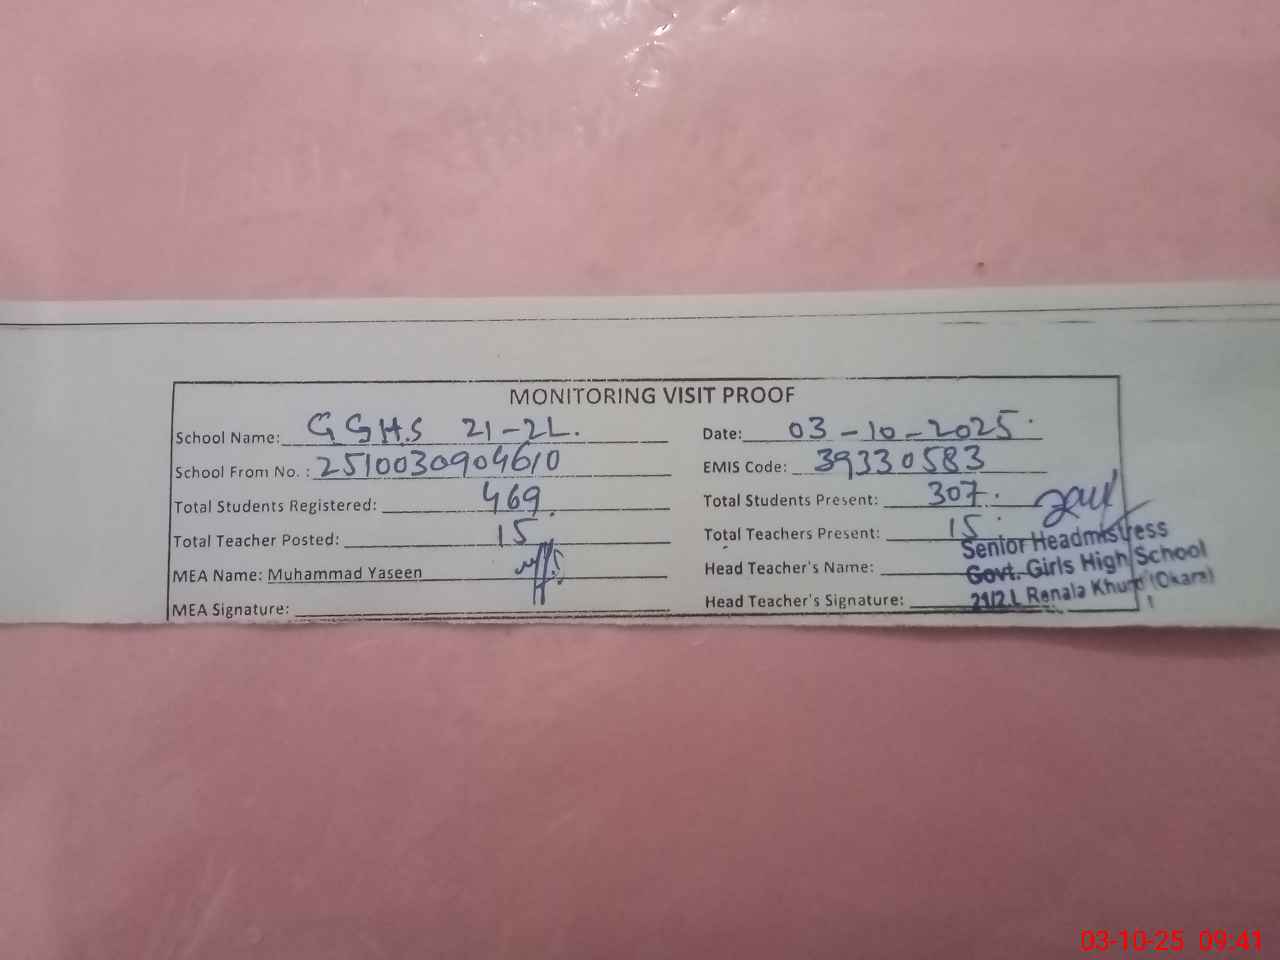 MONITORING VISIT PROOF
School Name: GGHS 21-2L.
Date: 03-10-2025
School From No. : 2510030904610
EMIS Code: 39330583
Total Students Registered: 469
Total Students Present: 307
Total Teacher Posted: 15
Total Teachers Present: 15
MEA Name: Muhammad Yaseen
Head Teacher's Name:
MEA Signature:
Head Teacher's Signature:
Senior Headmistress
Govt. Girls High School
21/2.L Renala Khurd (Okara)
03-10-25 09:41